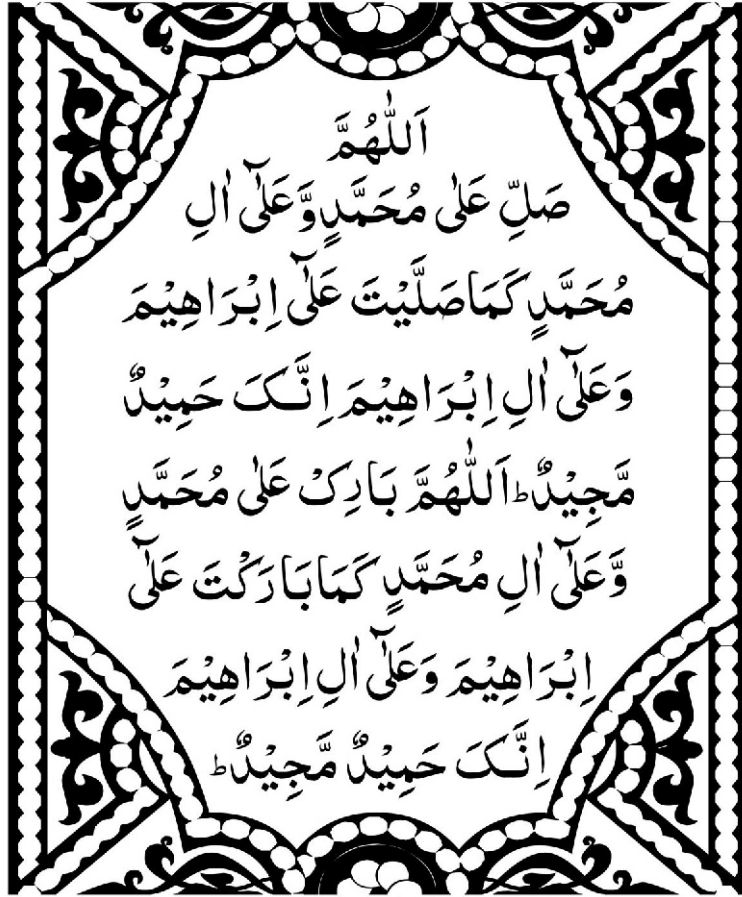 اَللّٰهُمَّ
صَلِّ عَلٰی مُحَمَّدٍ وَّعَلٰٓی اٰلِ
مُحَمَّدٍ كَمَا صَلَّیْتَ عَلٰٓی اِبْرَاهِیْمَ
وَعَلٰٓی اٰلِ اِبْرَاهِیْمَ اِنَّکَ حَمِیْدٌ
مَّجِیْدٌ ؕ اَللّٰهُمَّ بَارِکْ عَلٰی مُحَمَّدٍ
وَّعَلٰٓی اٰلِ مُحَمَّدٍ كَمَا بَارَكْتَ عَلٰٓی
اِبْرَاهِیْمَ وَعَلٰٓی اٰلِ اِبْرَاهِیْمَ
اِنَّکَ حَمِیْدٌ مَّجِیْدٌ ؕ